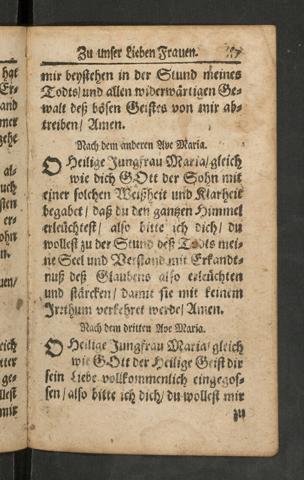 Zu unser Lieben Frauen.
mir beystehen in der Stund meines
Todts/ und allen widerwärtigen Ge-
walt deß bösen Geistes von mir ab-
treiben/ Amen.
Nach dem anderen Ave Maria.
O Heilige Jungfrau Maria/ gleich
wie dich GOtt der Sohn mit
einer solchen Weißheit und Klarheit
begabet/ daß du den gantzen Himmel
erleuchtest/ also bitte ich dich/ du
wollest zu der Stund deß Todts mei-
ne Seel und Verstand mit Erkandt-
nuß deß Glaubens also erleuchten
und stärcken/ damit sie mit keinem
Irrthum verkehret werde/ Amen.
Nach dem dritten Ave Maria.
O Heilige Jungfrau Maria/ gleich
wie GOtt der Heilige Geist dir
sein Liebe vollkommentlich eingegos-
sen/ also bitte ich dich/ du wollest mir
zu